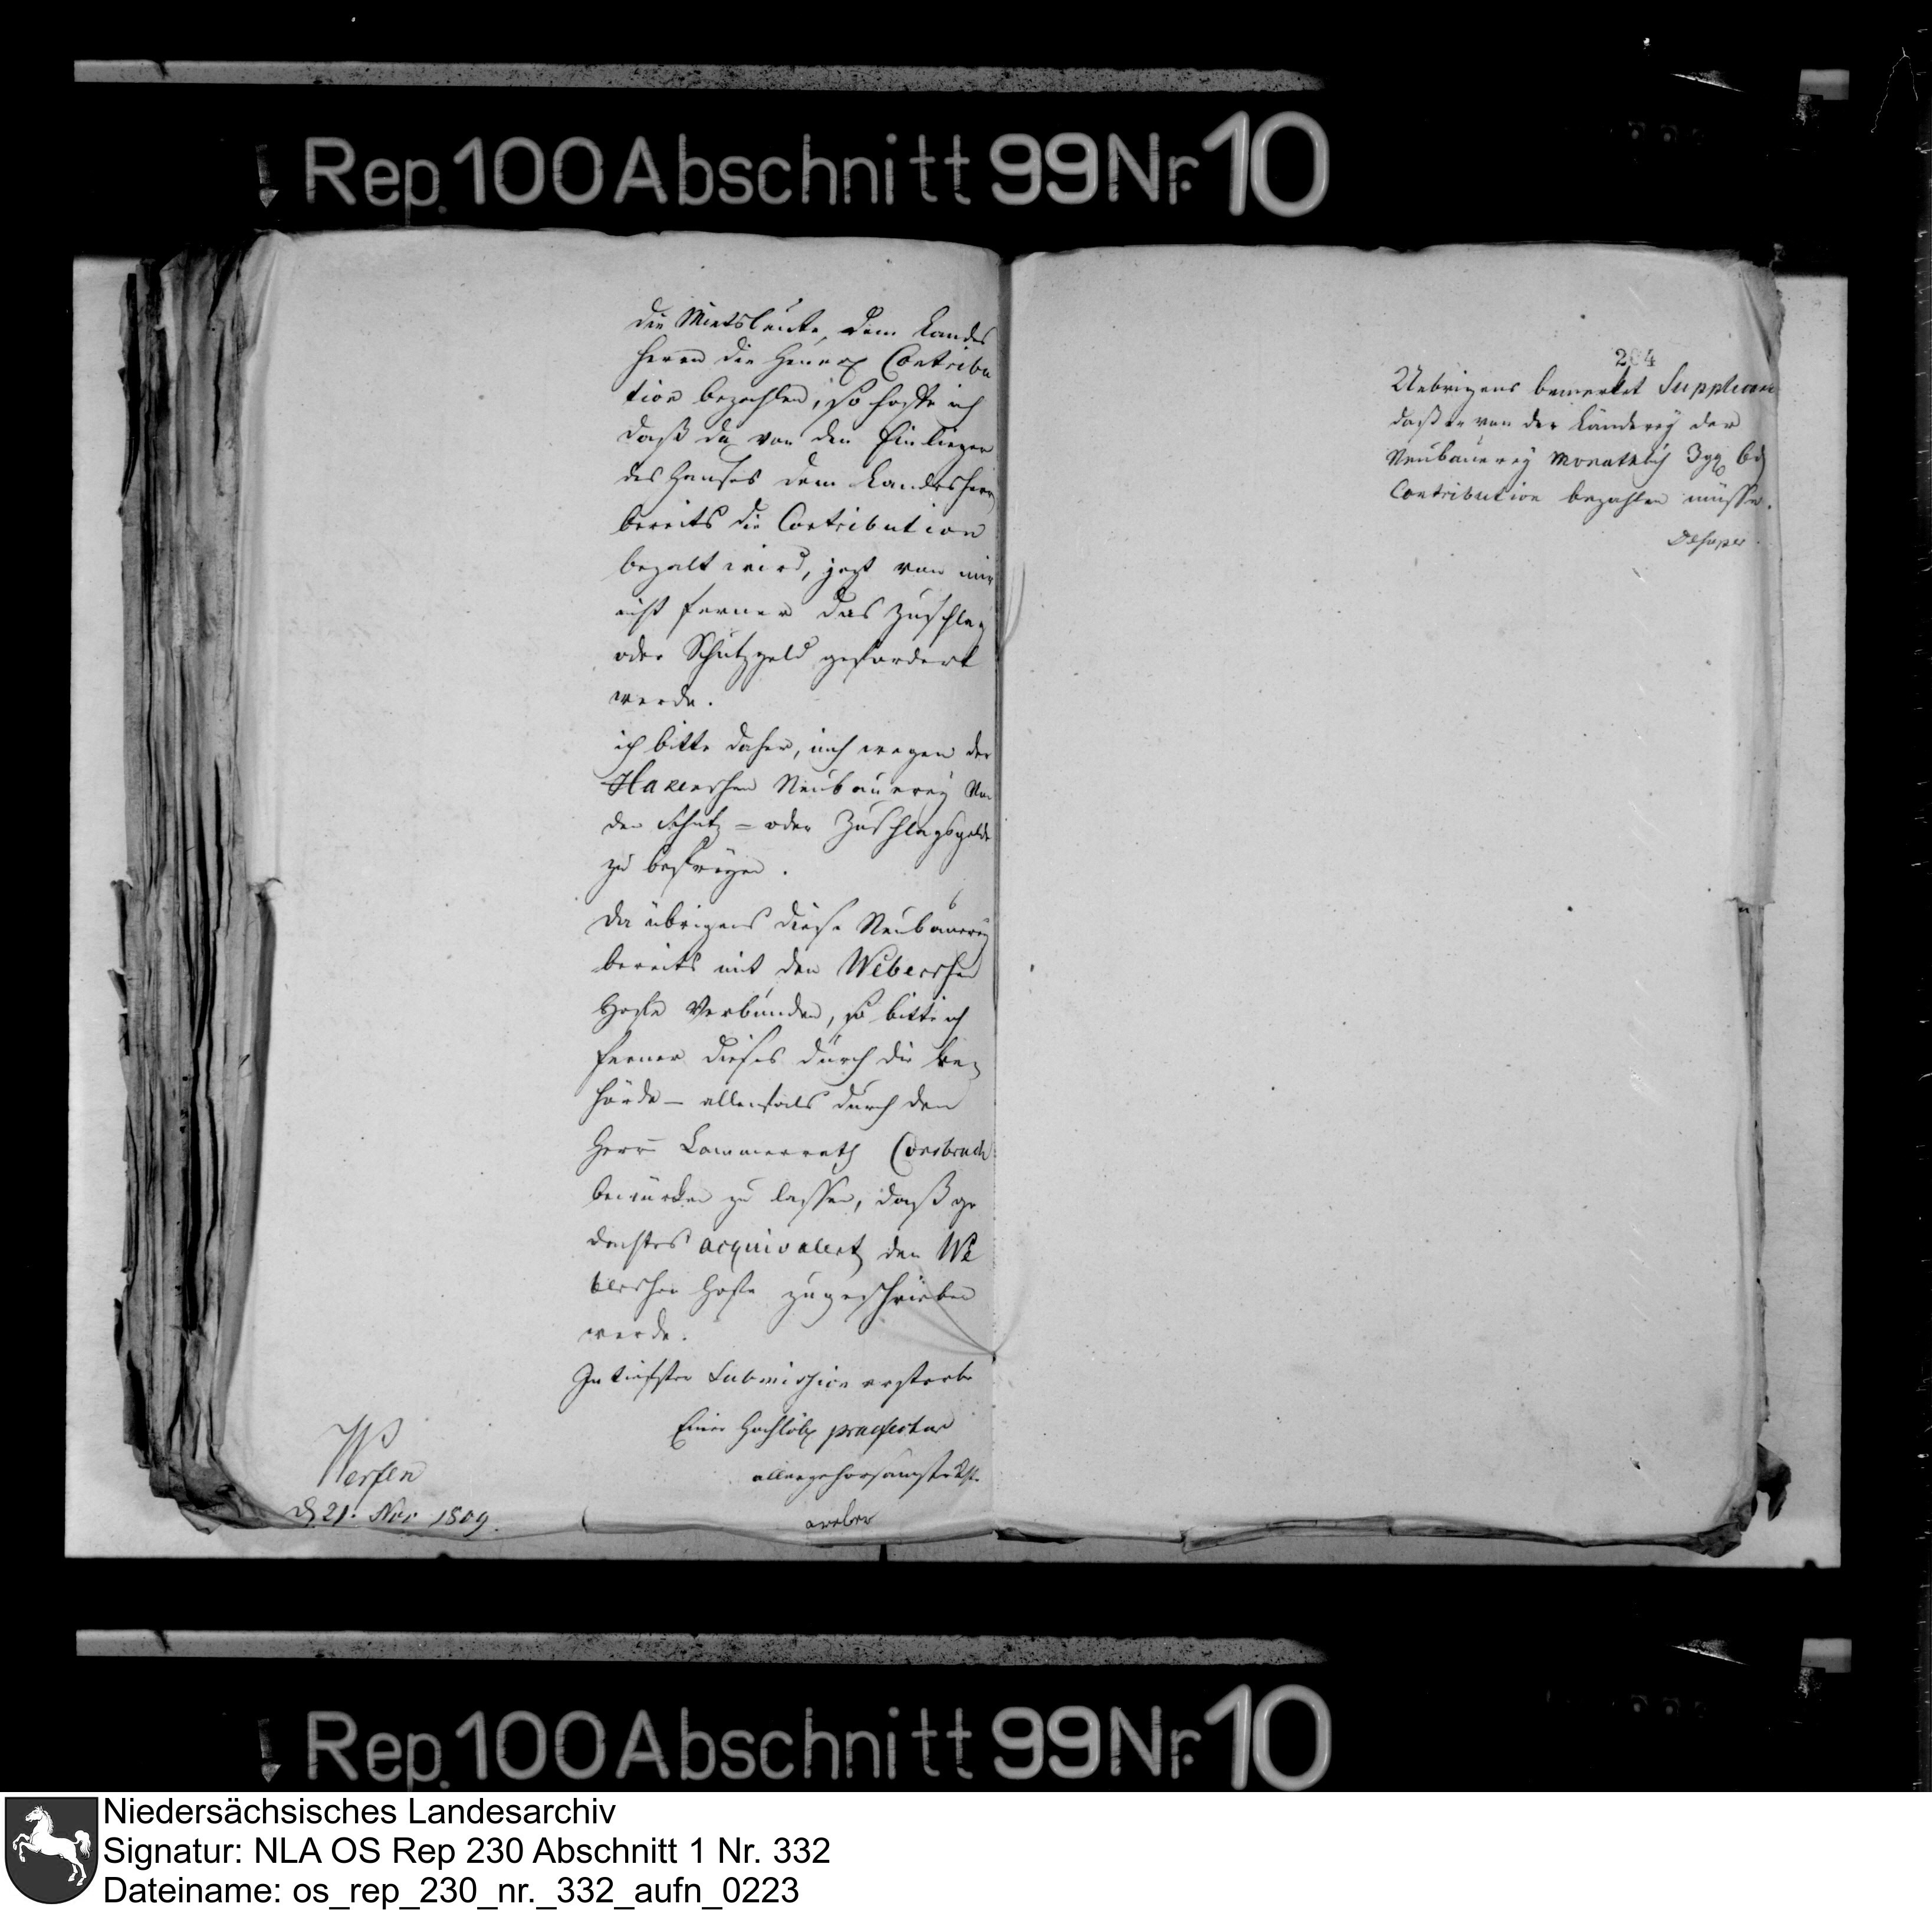 Rep. 100 Abschnitt 99 Nr. 10
die Mietsleute, dem Landes
herrn die Contribu
tion bezahlen, so hoffe ich
daß da von den Einliegern
des Hauses dem Landesherrn
bereits die Contribution
bezalt wird, jezt von mir
nicht ferner das Zuschlag
oder Schutzgeld gefordert
werde.
ich bitte daher, mich wegen der
Neubauerey von
den Schutz = oder Zuschlagsgelde
zu befreyen.
Da übrigens diese Neubauerey
bereits mit den Weberschen
Hofe verbunden, so bitte ich
ferner dieses durch die be-
hörde – allenfals durch den
Herrn Cammerrath Consbruch
bewürken zu lassen, daß ge
dachtes aequivalent den We
berschen Hofe zugeschrieben
werde.
In tiefster Submission ersterbe
Einer Hochlöbl praefectur
allergehorsamster
Werfen
d 21. Nov 1809.
204
Uebrigens bemerket Supplicant
daß er von der Länderey der
Neubauerey Monathlich 3 ggr 6 d
Contribution bezahlen müsse.
Rep. 100 Abschnitt 99 Nr. 10
Niedersächsisches Landesarchiv
Signatur: NLA OS Rep 230 Abschnitt 1 Nr. 332
Dateiname: os_rep_230_nr._332_aufn_0223